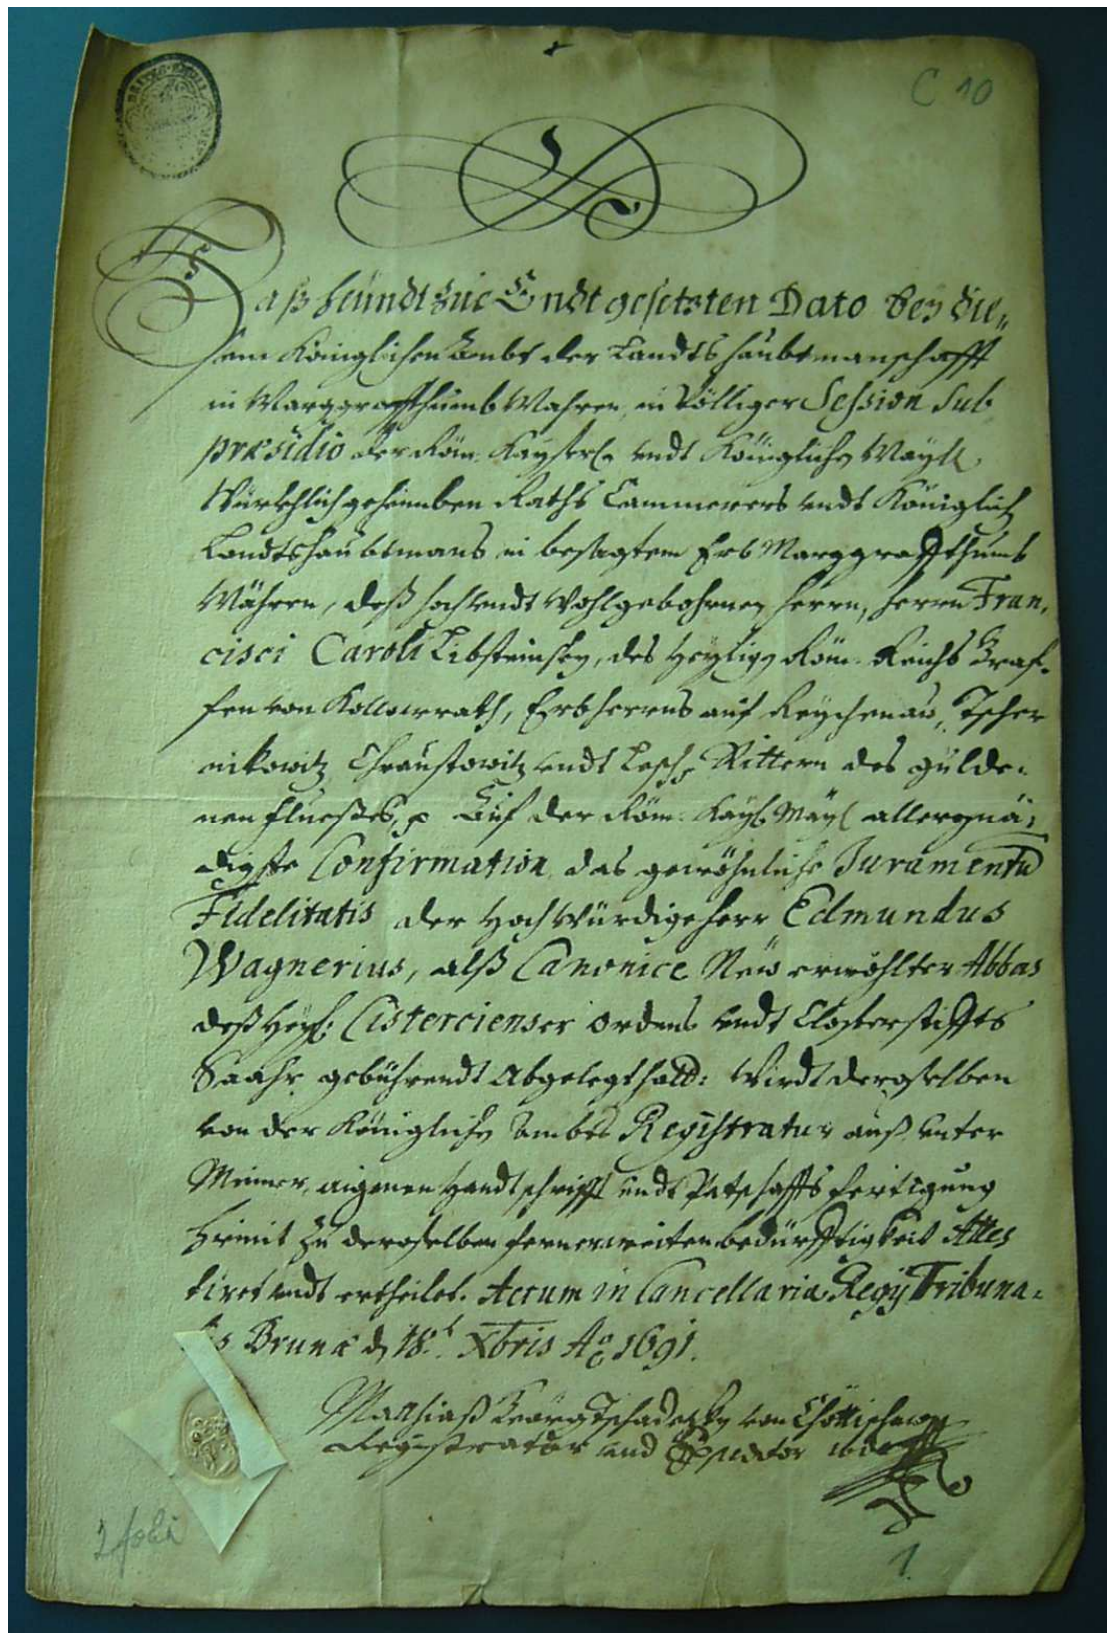 C 10
Daß heündt zue Endt gesetzten Dato bey die„
sem Königlichen Ambt der Landtshaubtmanschafft
in Marggraffthumb Mähren, in völliger Session sub
præsidio der Röm: Kayserl. undt Königlichen Mayst.
Würcklich geheimben Raths Cammerers undt Königlich
Landtshaubtmans in besagtem Erb Marggraffthumb
Mähren, deß hoch undt Wohlgebohrnen Herrn, Herrn Fran,
cisci Caroli Libsteinsky, des Heyligen Röm: Reichs Graf„
fen von Kollowrath, Erbherrns auf Reychenau, Tscher
nikowitz Chraustowitz undt Rittern des gülde„
nen Flueßes, p Auf der Röm: Kay: May: allergnä„
digste Confirmation das gewöhnliche Juramentũ
Fidelitatis der HochWürdige Herr Edmundus
Wagnerius, alß Canonice New erwöhlter Abbas
deß Heyl: Cistercienser Ordens undt Closterstiffts
Saahr gebührendt Abgelegt Wirdt deroselben
von der Königlichen Ambts Registratur auß unter
Meiner, aigenen Handtschrifft undt Petschaffts fertigung
hiemit zu deroselben fernerweiten bedürfftigkeit Attes
tiret undt ertheilet. Actum in Cancellaria Regij Tribuna„
lis Brunæ d. 18t. Xbris Ao 1691.
Mathiaß Geörg Tschadesky von
Registrator und Expeditor
2 folii
1.